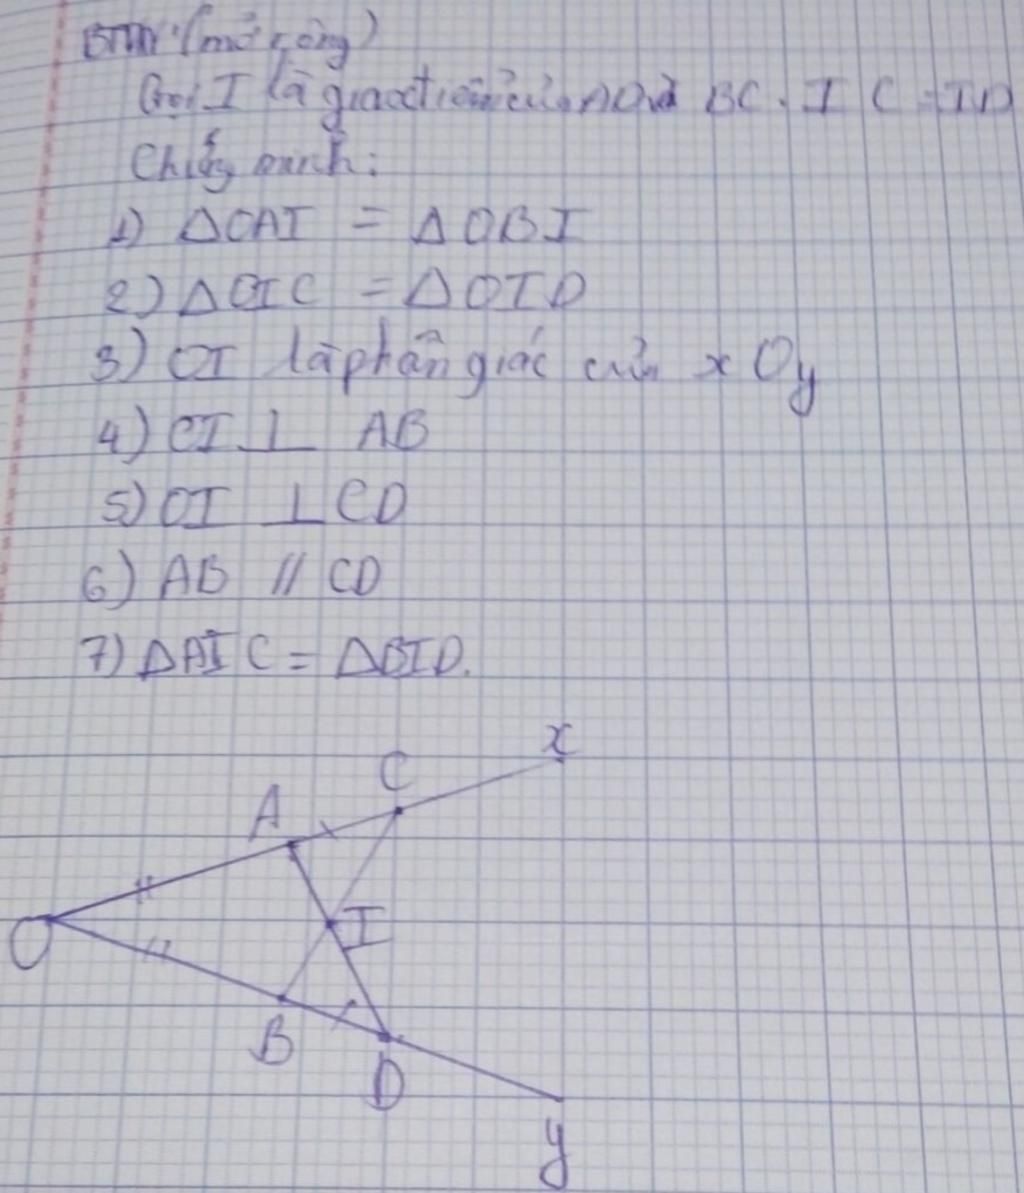 BTVN (mở rộng)
Gọi I là giao điểm của AD và BC. IC = ID
Chứng minh:
1) ΔOAI = ΔOBI
2) ΔOIC = ΔOID
3) OI là phân giác của xOy
4) OI ⊥ AB
5) OI ⊥ CD
6) AB // CD
7) ΔAIC = ΔBID.
x
C
A
I
O
B
D
y